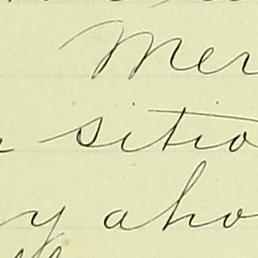 Mer
sitio
y aho